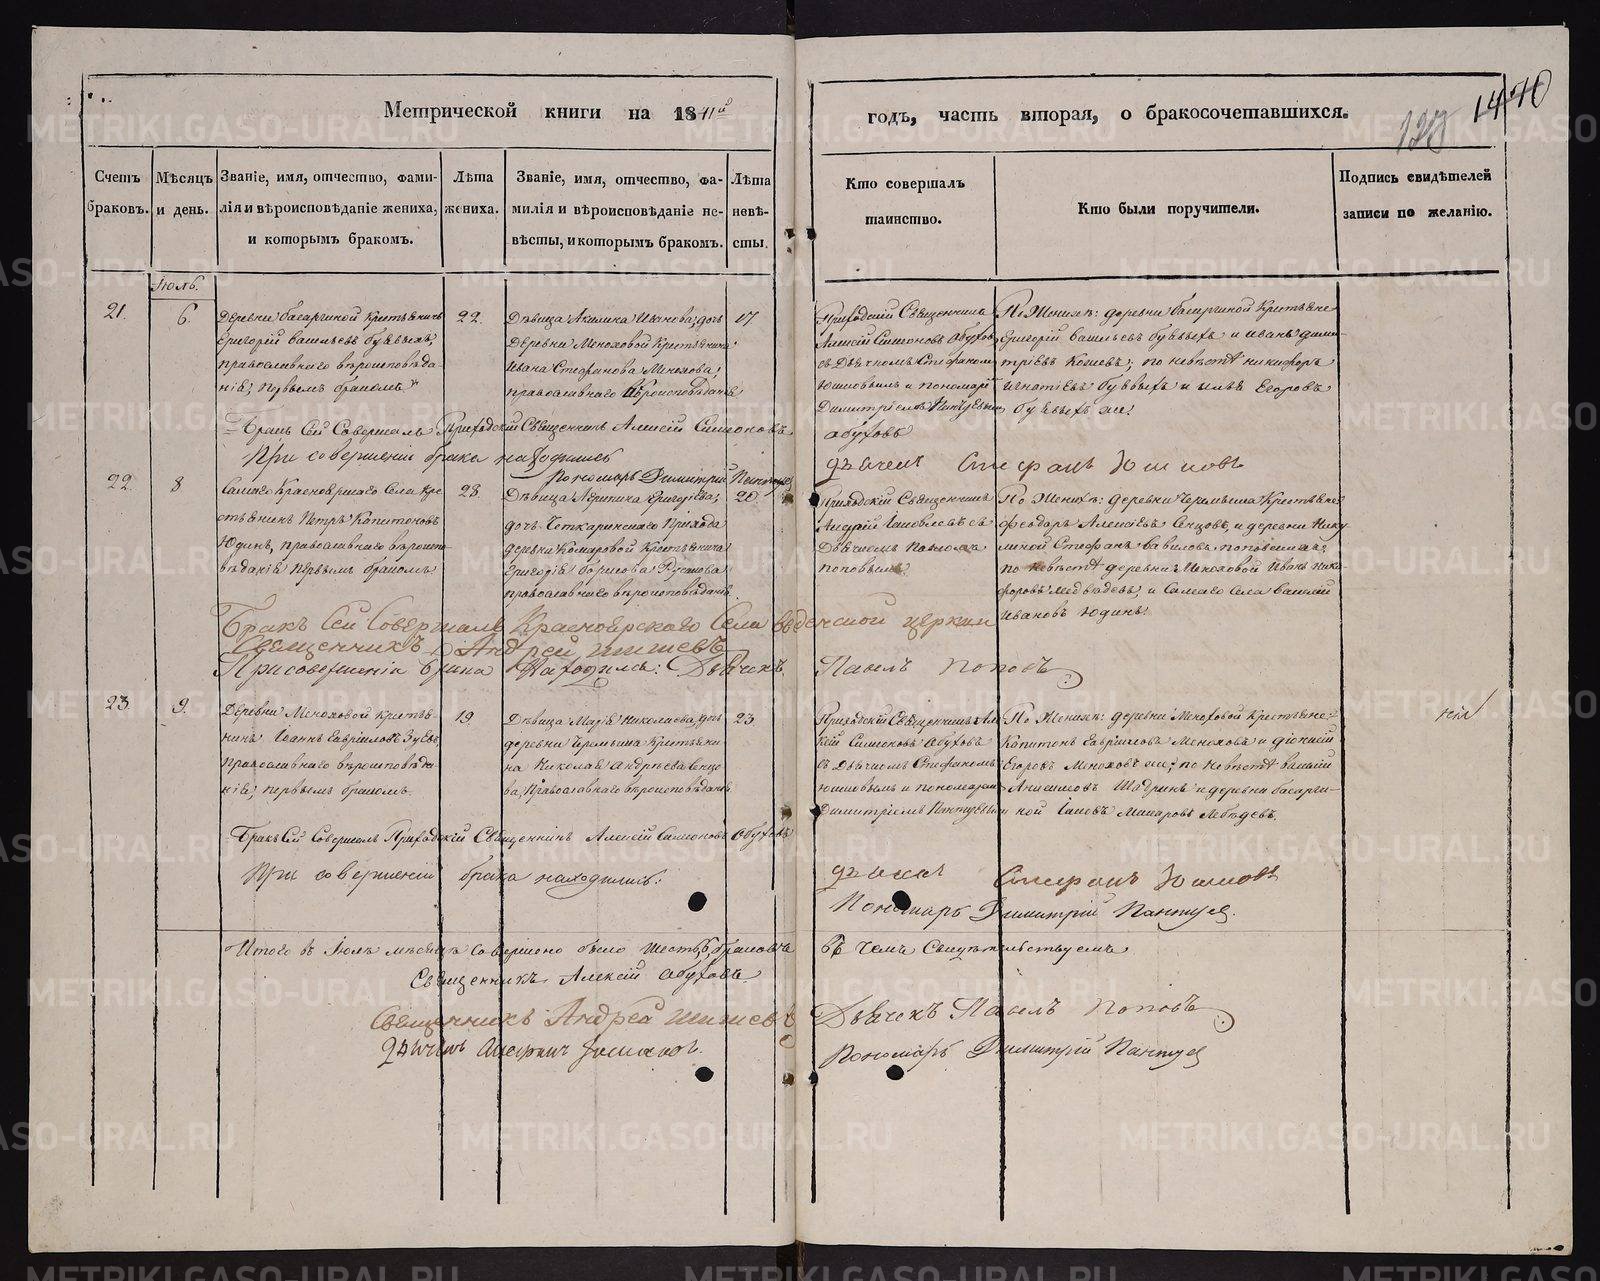 Метрической книги на 1841й
годъ, часть вторая, о бракосочетавшихся.
Счетъ браковъ.
Мѣсяцъ и день.
Званіе, имя, отчество, фами-
лія и вѣроисповѣданіе жениха,
и которымъ бракомъ.
Лѣта
жениха.
Званіе, имя, отчество, фа-
милія и вѣроисповѣданіе не-
вѣсты, и которымъ бракомъ.
Лѣта
невѣ-
сты.
Кто совершалъ
таинство.
Кто были поручители.
Подпись свидѣтелей
записи по желанію.
Іюль.
21.
6.
Деревни Басаргиной Крестьянинъ
Григорій Васильевъ
православнаго вѣроисповѣда-
нія; первымъ бракомъ
22.
Дѣвица Акилина Иванова; дочь
Деревни Меноховой Крестьянина
Ивана Стефанова Менохова;
православнаго вѣроисповѣданія
17
Приходскій Священникъ
Алексій Симоновъ Обуховъ
съ Дьячкомъ Стефаномъ
Юшковымъ и пономаремъ
Димитріемъ Пантуевымъ
По Женихѣ: деревни Басаргиной Крестьяне
Григорій Васильевъ и Иванъ Дими-
тріевъ; по невѣстѣ Никифоръ
Игнатіевъ и Егоровъ
Бракъ Сей Совершалъ Приходскій Священникъ Алексій Симоновъ
Обуховъ
При совершеніи брака находились
дьячекъ Стефанъ Юшковъ
Пономарь Димитрій Пантуевъ
22.
8
Самаго Красноярскаго Села Кре-
стьянинъ Петръ Капитоновъ
Юдинъ, православнаго вѣроиспо-
вѣданія первымъ бракомъ
23.
Дѣвица Григоріева;
дочь Четкаринскаго Прихода
деревни Комаровой Крестьянина
Григорія Борисова
православнаго вѣроисповѣданія.
20.
Приходскій Священникъ
Андрей съ
Дьячкомъ Павломъ
Поповымъ.
По Женихѣ: деревни Чермыша Крестьяне
Феодоръ Алексіевъ Сенцовъ, и деревни Нику-
линой Стефанъ Вавиловъ
по невѣстѣ деревни Меноховой Иванъ Ники-
форовъ Медвѣдевъ, и Самаго Села Василій
Ивановъ Юдинъ.
Бракъ Сей Совершалъ Красноярского Села церкви
Священникъ Андрей Шишевъ
При совершеніи брака находился: Дьячекъ Павелъ Поповъ
23.
9.
Деревни Меноховой Крестья-
нинъ Іоаннъ Гавріиловъ Зуевъ,
православнаго вѣроисповѣда-
нія, первымъ бракомъ.
19.
Дѣвица Марія Николаева, дочь
деревни Чермыша Крестьяни-
на Николая Андреева Сенцо-
ва, Православнаго вѣроисповѣданія
23.
Приходскій Священникъ Але-
ксій Симоновъ Обуховъ
съ Дьячкомъ Стефаномъ
Юшковымъ и пономаремъ
Димитріемъ Пантуевымъ
По Женихѣ: деревни Меноховой Крестьяне:
Капитонъ Гавріиловъ Меноховъ и Діонисій
Егоровъ Меноховъ же; по Невѣстѣ Василій
Анисимовъ Шадринъ и деревни Басарги-
ной Іаковъ Макаровъ Лебедевъ.
Бракъ Сей Совершалъ Приходскій Священникъ Алексій Симоновъ Обуховъ
При совершеніи брака находились:
дьячекъ Стефанъ Юшковъ
Пономарь Димитрій Пантуев.
Итого въ Іюлѣ мѣсяцѣ совершено было шесть, 6, браковъ
въ чемъ Свидѣтельствуемъ
Священникъ Алексій Обуховъ.
Священникъ Андрей Шишевъ
Дьячекъ Павелъ Поповъ
дьячекъ Стефанъ Юшковъ.
Пономарь Димитрій Пантуев
METRIKI.GASO-URAL.RU